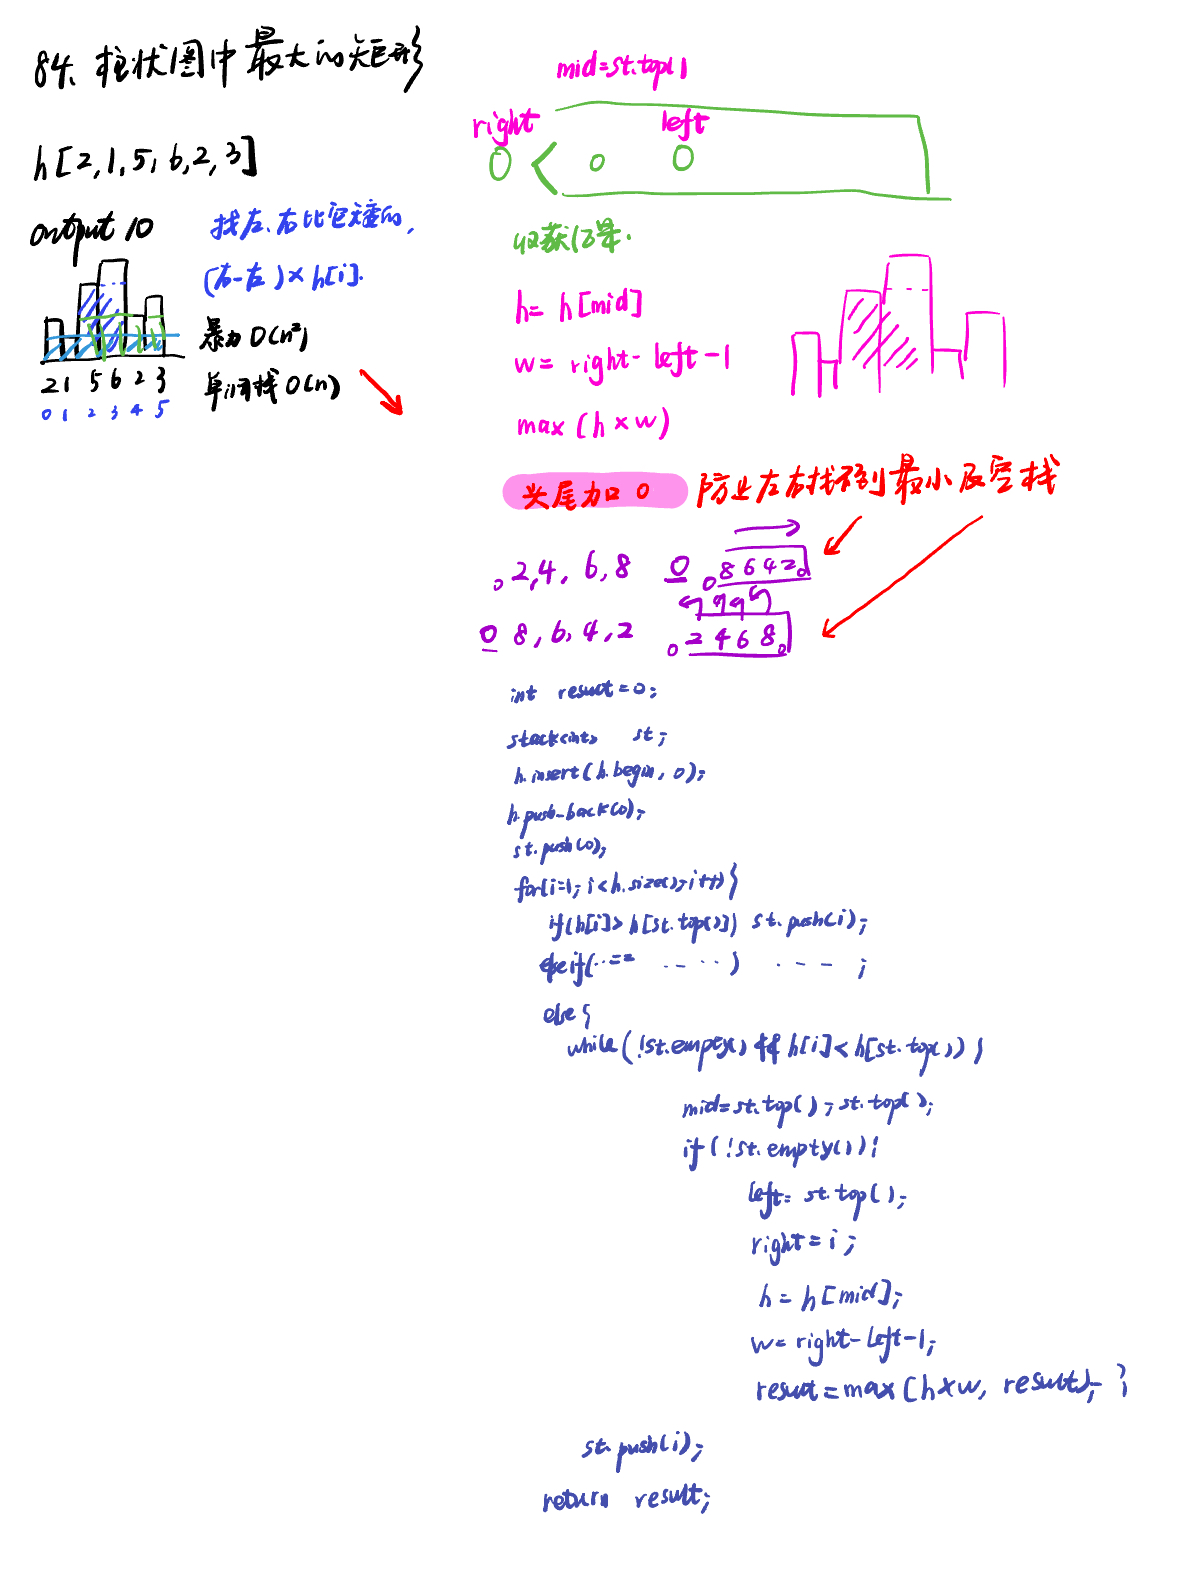 84、柱状图中最大的矩形
h[2,1,5,6,2,3]
output 10
找左、右比它矮的,
(右-左)×h[i].
暴力 O(n²)
单调栈 O(n)
2 1 5 6 2 3
0 1 2 3 4 5
mid=st.top()
right left
0 < 0 0
收获结果.
h= h[mid]
w= right-left-1
max (h×w)
头尾加0 防止左右找不到最小及空栈
0 2,4,6,8 0 0 8 6 4 2 0
0 8,6,4,2 0 2 4 6 8 0
int result=0;
stack<int> st;
h.insert(h.begin, 0);
h.push_back(0);
st.push(0);
for(i=1; i<h.size(); i++){
if(h[i]> h[st.top()]) st.push(i);
else if(...== ... ...) ... ;
else {
while (!st.empty() && h[i]<h[st.top()) {
mid=st.top(); st.top();
if (!st.empty()){
left= st.top();
right= i;
h = h[mid];
w= right-left-1;
result=max(h×w, result); }
st.push(i);
return result;